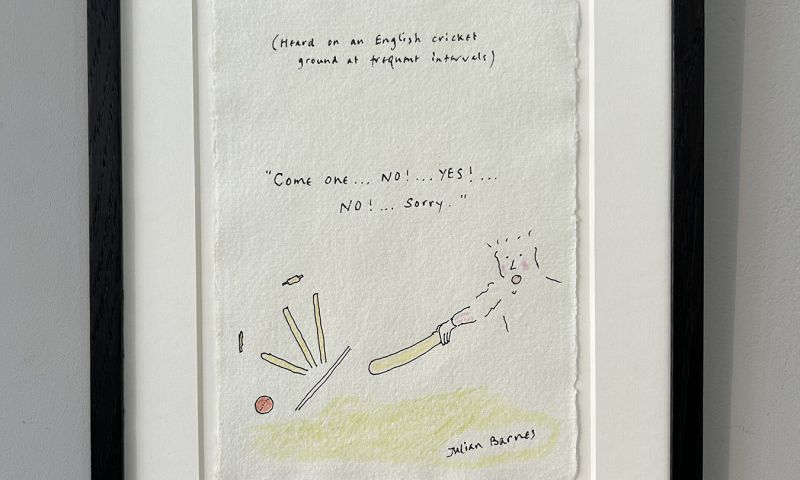 (Heard on an English cricket
ground at frequent intervals)
"Come one... NO!... YES!...
NO!... Sorry."
Julian Barnes